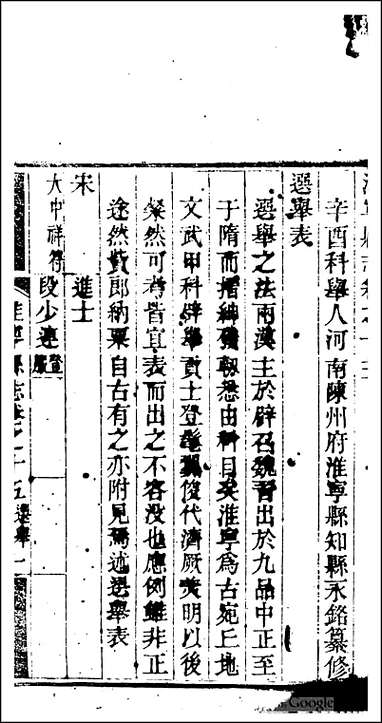 淮寧縣志卷之十五
辛酉科舉人河南陳州府淮寧縣知縣永銘纂修
選舉表
選舉之法兩漢主於辟召魏晉出於九品中正至
于隋而搢紳殘軔悉由科目矣淮寧為古宛丘地
文武甲科辟舉貢士登俊代濟厥美明以後
粲然可考皆宜表而出之不容沒也應例雖非正
途然貲郎納粟自古有之亦附見焉述選舉表
宋 進士
大中祥符 段少連 登服
淮寧縣志卷之十五 選舉 一
Google